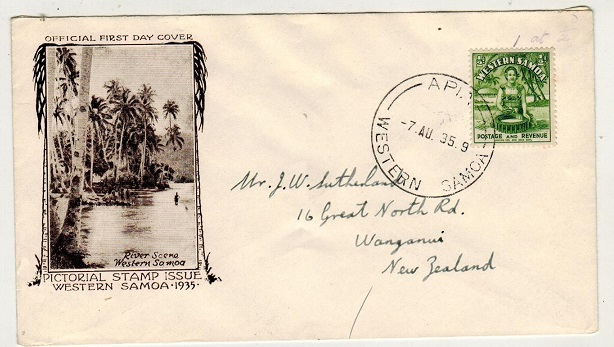 OFFICIAL FIRST DAY COVER
River Scene
Western Samoa
PICTORIAL STAMP ISSUE
WESTERN SAMOA · 1935 ·
WESTERN SAMOA
POSTAGE AND REVENUE
-7.AU.35.9
WESTERN SAMOA
Mr. J. W. Sutherland
16 Great North Rd.
Wanganui
New Zealand